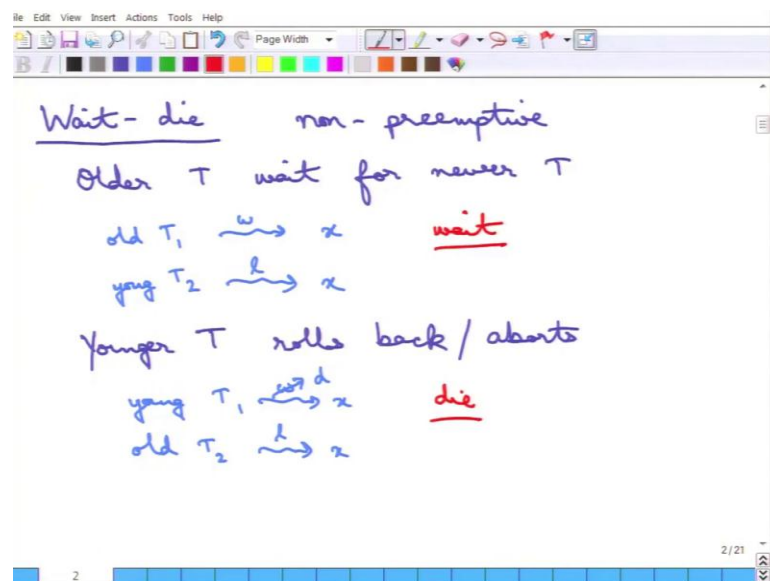 ile Edit View Insert Actions Tools Help
Page Width
B I
Wait-die non-preemptive
Older T wait for newer T
old T1 w x wait
yong T2 l x
Younger T rolls back/aborts
yong T1 w d x die
old T2 l x
2/21
2